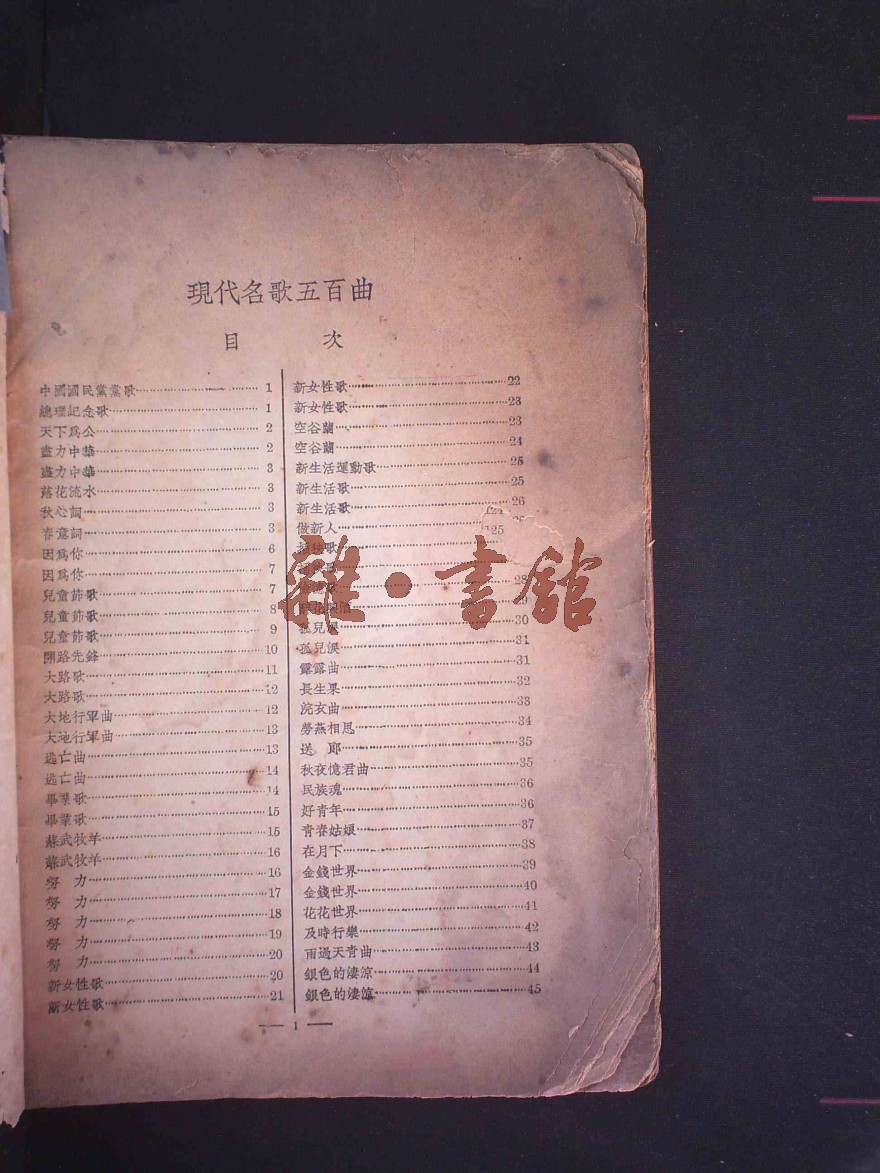 現代名歌五百曲
目 次
中國國民黨黨歌 1
總理記念歌 1
天下爲公 2
盡力中華 2
盡力中華 3
落花流水 3
秋心詞 3
春意詞 3
因爲你 6
因爲你 7
兒童節歌 7
兒童節歌 8
兒童節歌 9
開路先鋒 10
大路歌 11
大路歌 12
大地行軍曲 12
大地行軍曲 13
逃亡曲 13
逃亡曲 14
畢業歌 14
畢業歌 15
蘇武牧羊 15
蘇武牧羊 16
努 力 16
努 力 17
努 力 18
努 力 19
努 力 20
新女性歌 20
新女性歌 21
新女性歌 22
新女性歌 23
空谷蘭 23
空谷蘭 24
新生活運動歌 25
新生活歌 25
新生活歌 26
做新人
125
歌
28
29
孤兒淚 30
孤兒淚 31
露露曲 31
長生果 32
浣衣曲 33
勞燕相思 34
送 郎 35
秋夜憶君曲 35
民族魂 36
好青年 36
青春姑娘 37
在月下 38
金錢世界 39
金錢世界 40
花花世界 41
及時行樂 42
雨過天青曲 43
銀色的淒涼 44
銀色的淒涼 45
— 1 —
雜·書館